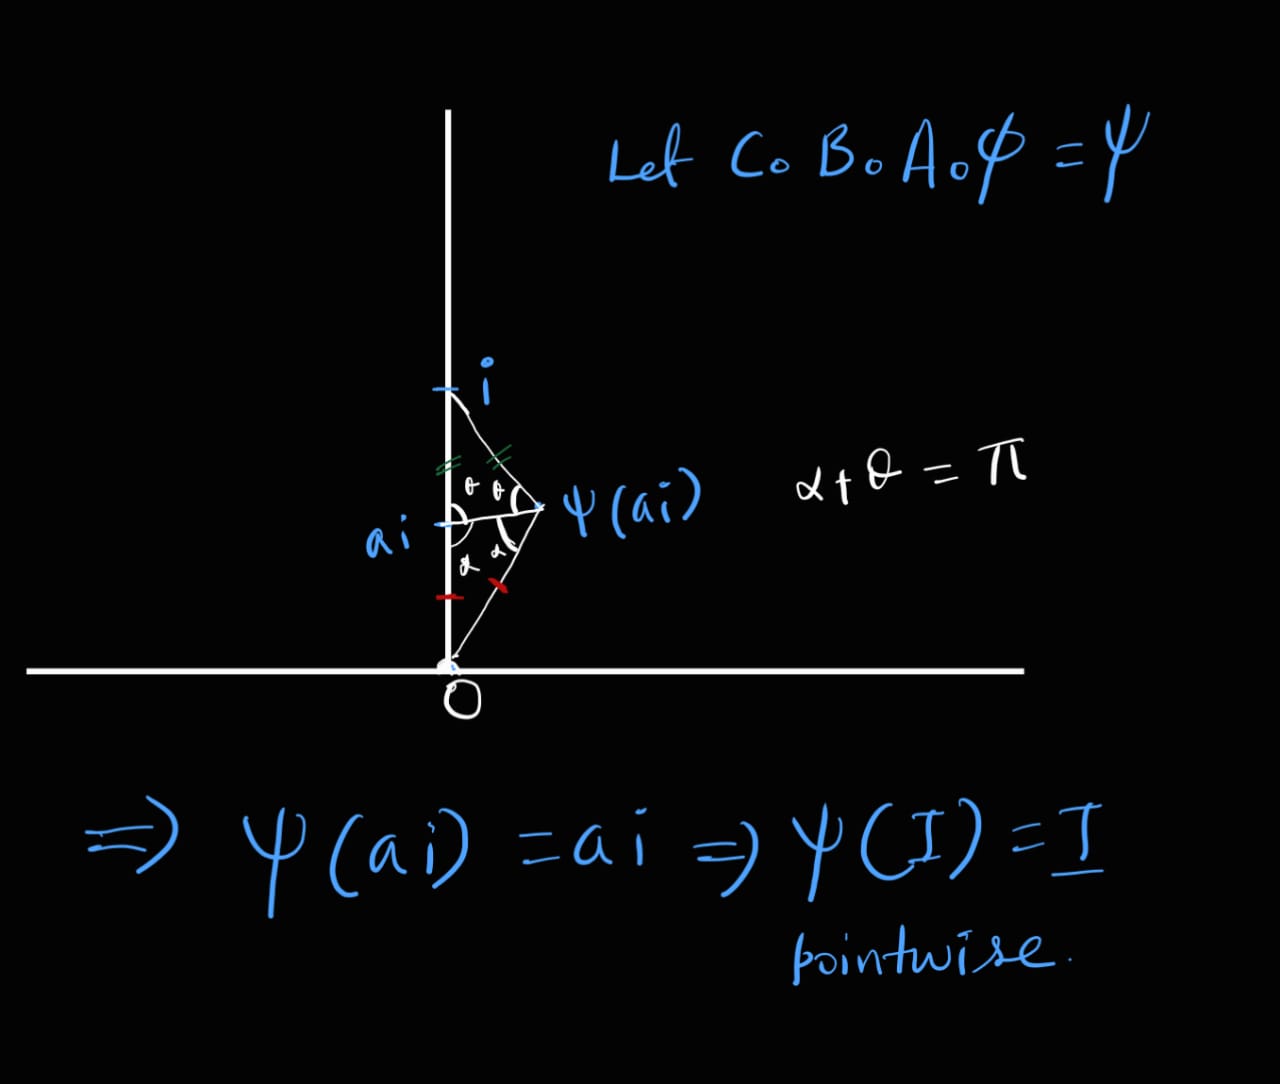 Let C∘B∘A∘φ = ψ
i
θ θ
ψ(ai)
α + θ = π
ai
α α
O
⇒ ψ(ai) = ai ⇒ ψ(I) = I
pointwise.